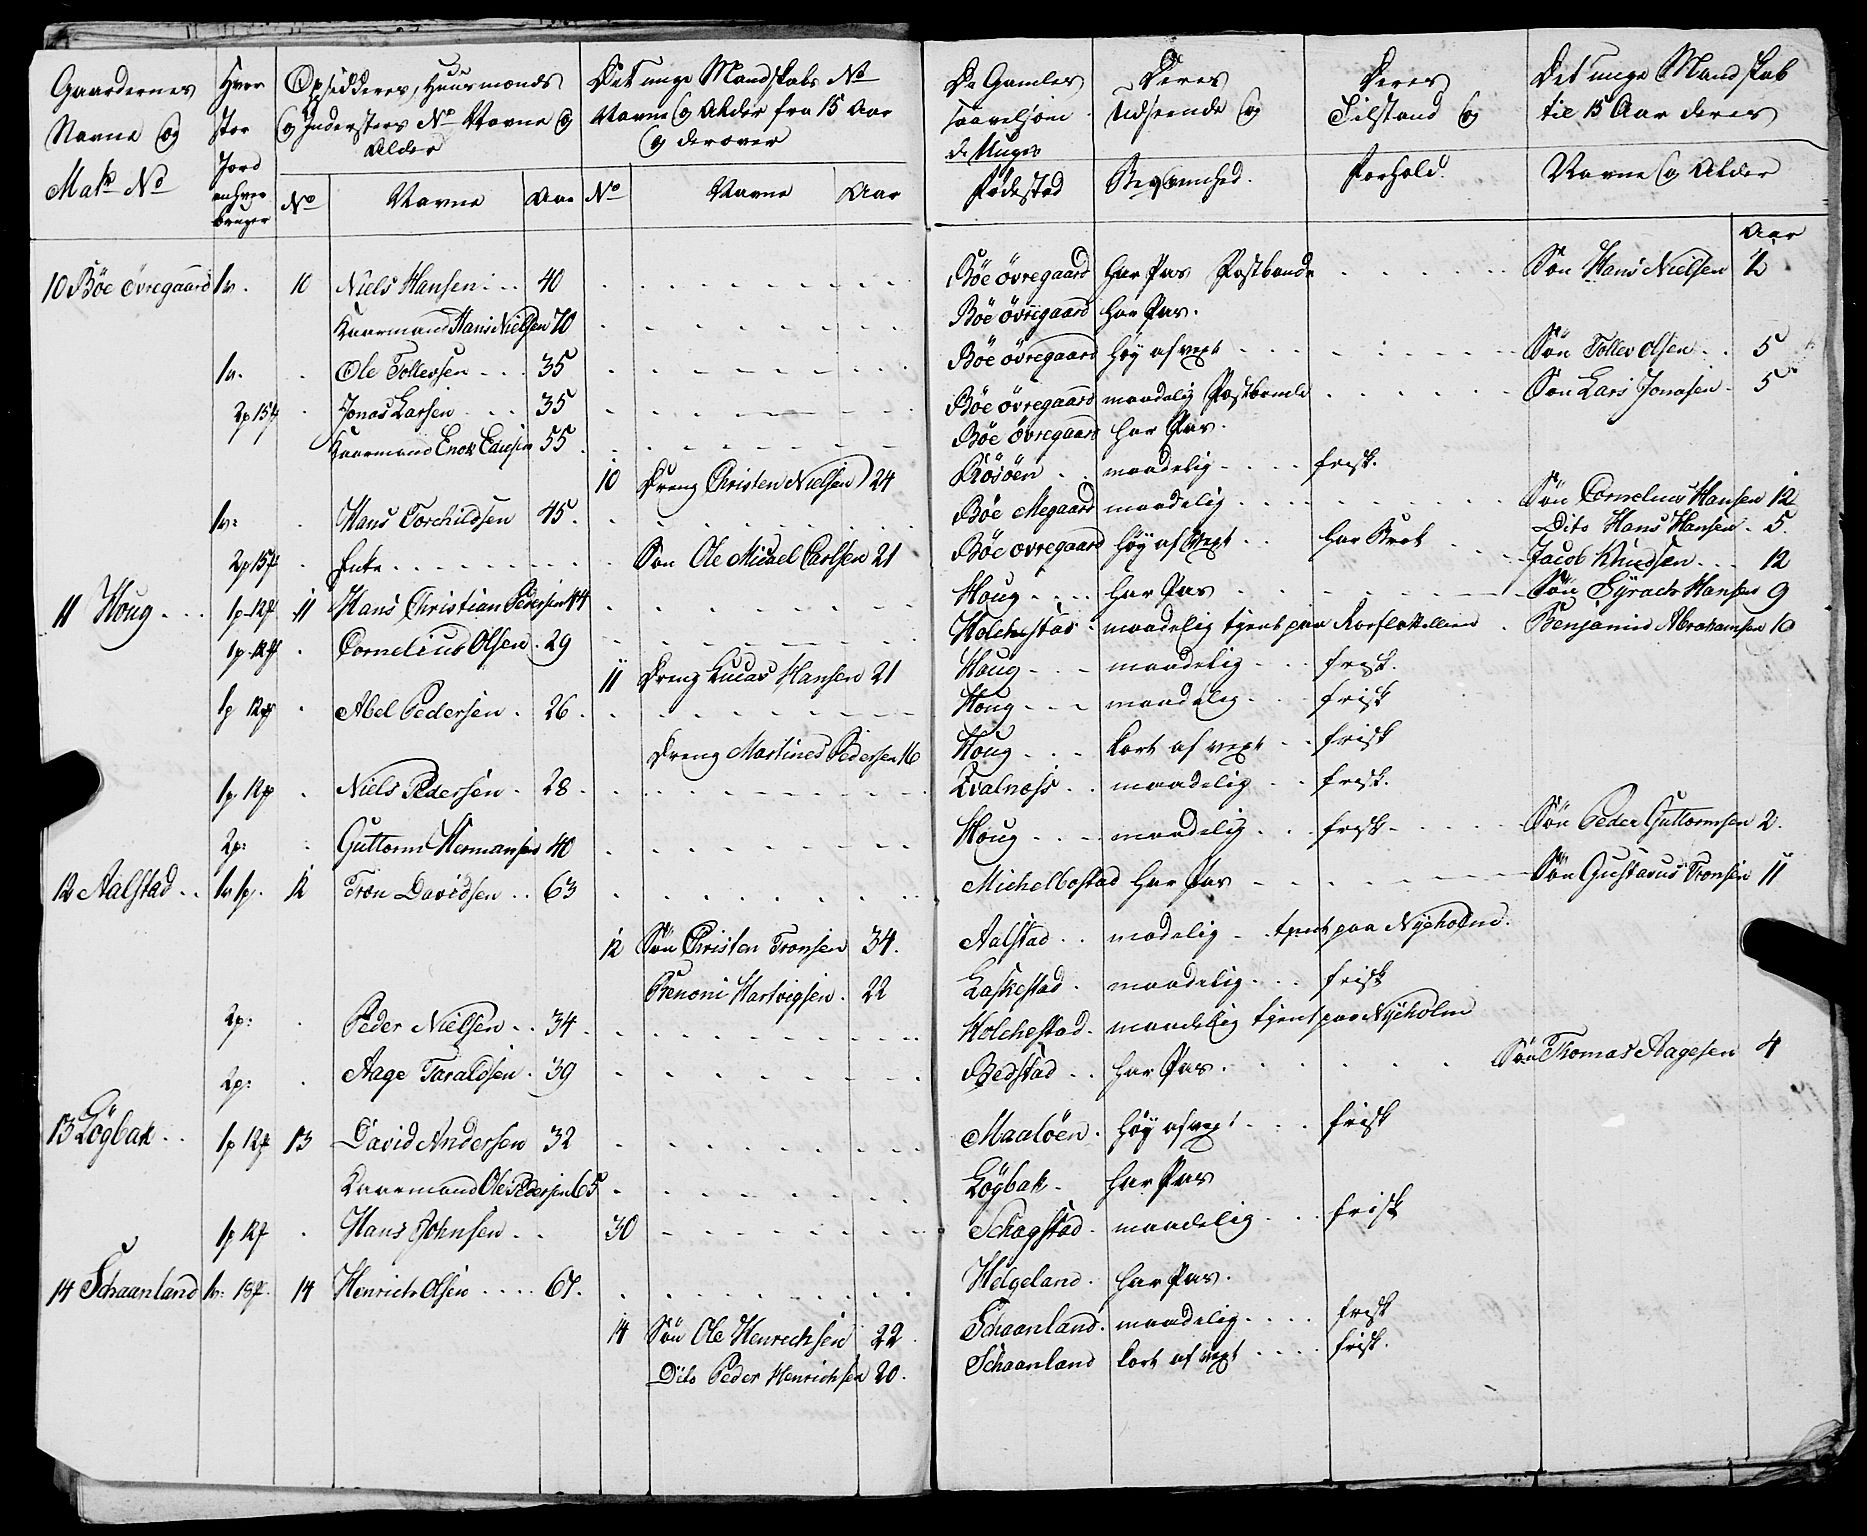 Gaardernes Navne og Mats No | Hvor stor Jord enhver bruger | Opsidderes, Huusmænds og Inderster No Navne og Alder | Det unge Mandskabs No Navne og Alder fra 15 Aar og derover | De Gamles saavelsom de Unges Fødested | Deres Udseende og | Deres Tilstand og Forhold | Det unge Mandskab til 15 Aar deres Navne og Alder
No | Navne | Aar | No | Navne | Aar | Aar
10 Böe övregaard | 1v. | 10 | Niels Hansen | 40 | Böe övregaard | har Pas Postbonde | Søn Hans Nielsen | 12
Kaarmand Hans Nielsen 70 | Böe övregaard | har Pas.
1v. | Ole Tollevsen | 35 | Böe övregaard | høy af vext | Søn Tollev Olsen | 5
2p 15 | Jonas Larsen | 35 | Böe övregaard | maadelig Postbonde | Søn Lars Jonasen | 5
Kaarmand Enok | 55 | Böe övregaard | har Pas.
10 | Dreng Christen Nielsen | 24 | maadelig | frisk.
1v: | Hans Torchildsen | 45. | Böe | maadelig | Søn Cornelius Hansen 12
Dito Hans Hansen 5
2p 15 | Enke | Søn Ole Michel Carlsen 21 | Böe övregaard | høy af Vext | Jacob Knudsen | 12
11 Houg | 1p 12 | 11 | Hans Christian Pedersen 44 | Houg | har Pas | Søn Hansen 9
1p 12 | Cornelius Olsen | 29 | Holchestad | maadelig tjent paa Roeflottillien | Benjamin Abrahamsen 10
11 | Dreng Lucas Hansen 21 | Houg | maadelig | frisk.
1p 12 | Abel Pedersen | 26 | Houg | maadelig | frisk
Dreng Martines Pedersen 16 | Houg | kort af vext | frisk
1p 12 | Niels Pedersen | 28 | maadelig | frisk.
2p: | Guttorm Hermansen 40 | Houg | maadelig | frisk | Søn Peder Guttormsen 2.
12 Aalstad | 1v 1p. | 12 | Tron Davidsen | 63 | Michelbostad | har Pas | Søn Gustavus Tronsen 11
12 | Søn Christen Tronsen | 34. | Aalstad | madelig | tjent paa Nyeholm.
Benoni Hartvigsen | 22 | Laskestad | maadelig | frisk
2p: | Peder Nielsen | 34 | Holchestad | maadelig tjent paa Nyeholm
2p: | Aage Taraldsen | 39 | Bedstad | har Pas. | Søn Thomas Aagesen 4
13 Løgbak | 1p 12 | 13 | David Andersen | 32 | Maaløen | høy af vext | frisk
Kaarmand Ole Pedersen 65 | Løgbak | har Pas
1p 12 | Hans Johnsen | 30 | Schagstad | maadelig | frisk
14 Schaanland | 1v: 18 | 14 | Henrich Olsen | 67. | Helgeland | har Pas.
14 | Søn Ole Henrechsen | 22 | Schaanland | maadelig | frisk
Dito Peder Henrichsen 20. | Schaanland | kort af vext | frisk.